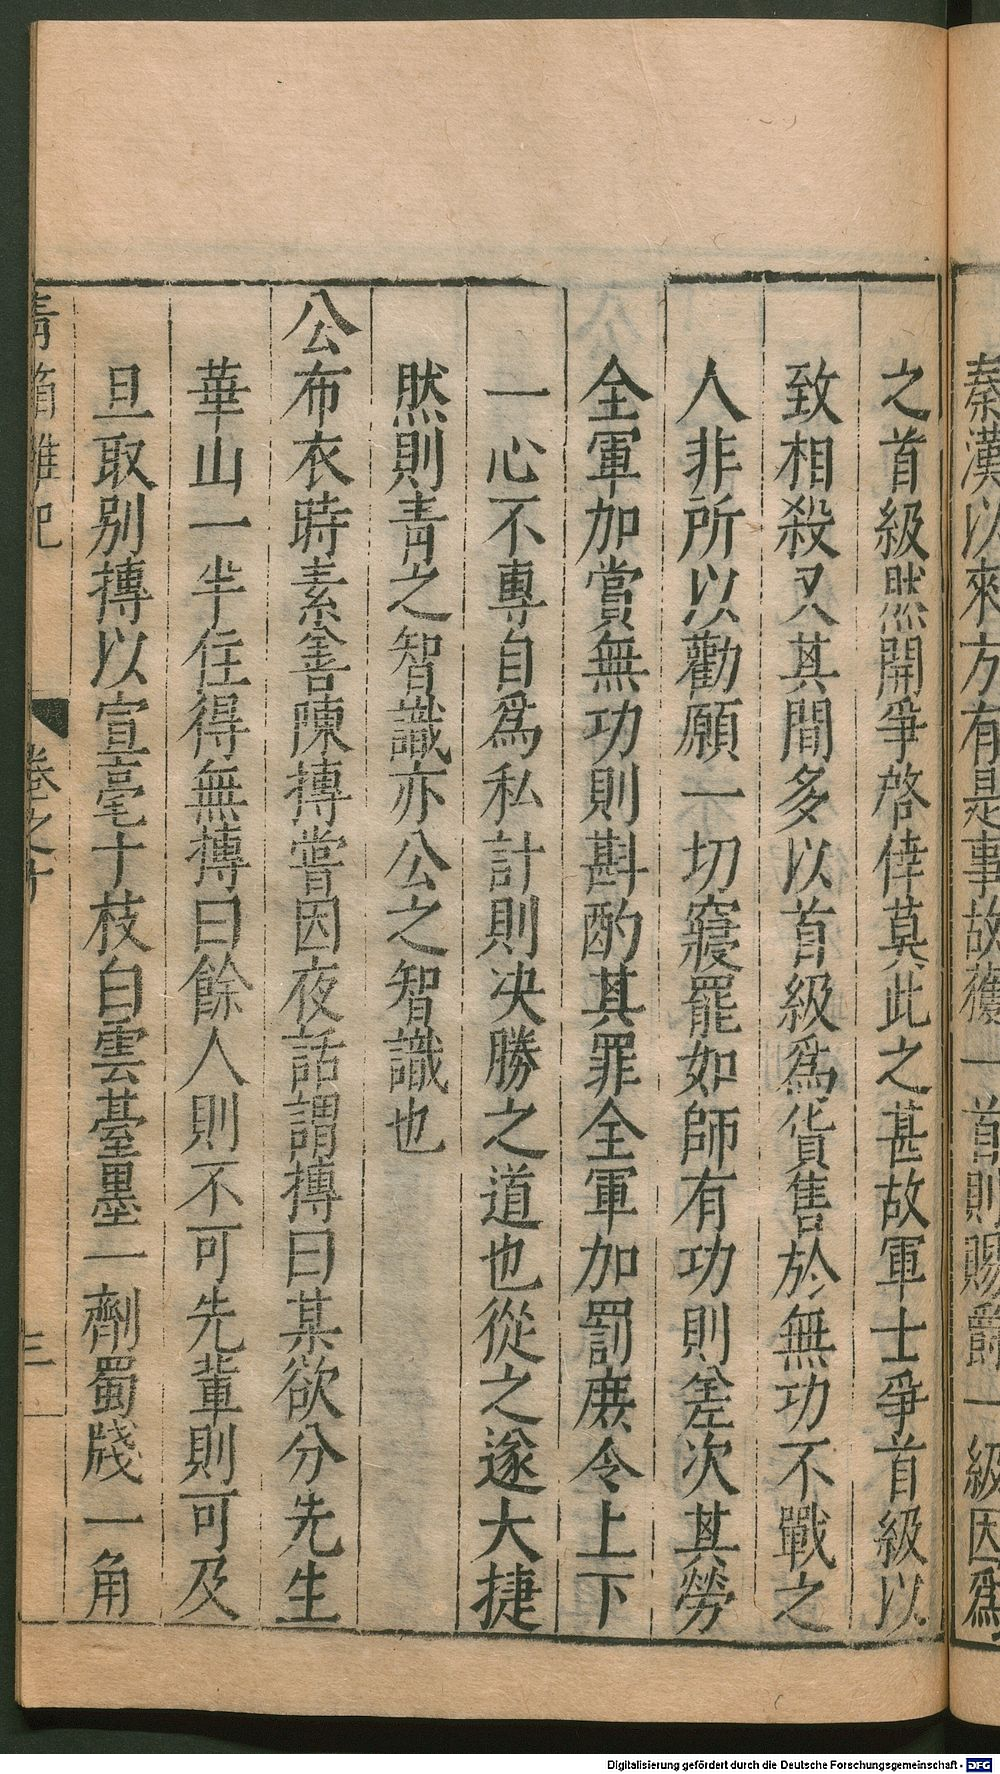 秦漢以來方有是事故獲一首則賜爵一級因爲
之首級然開爭啓倖莫此之甚故軍士爭首級以
致相殺又其間多以首級爲貨售於無功不戰之
人非所以勸願一切寢罷如師有功則差次其勞
全軍加賞無功則斟酌其罪全軍加罰庶令上下
一心不專自爲私計則决勝之道也從之遂大捷
然則青之智識亦公之智識也
公布衣時素善陳摶嘗因夜話謂摶曰某欲分先生
華山一半住得無摶曰餘人則不可先輩則可及
旦取别摶以宣毫十枝白雲臺墨一劑蜀牋一角
青箱雜記
卷之十
三
Digitalisierung gefördert durch die Deutsche Forschungsgemeinschaft - DFG